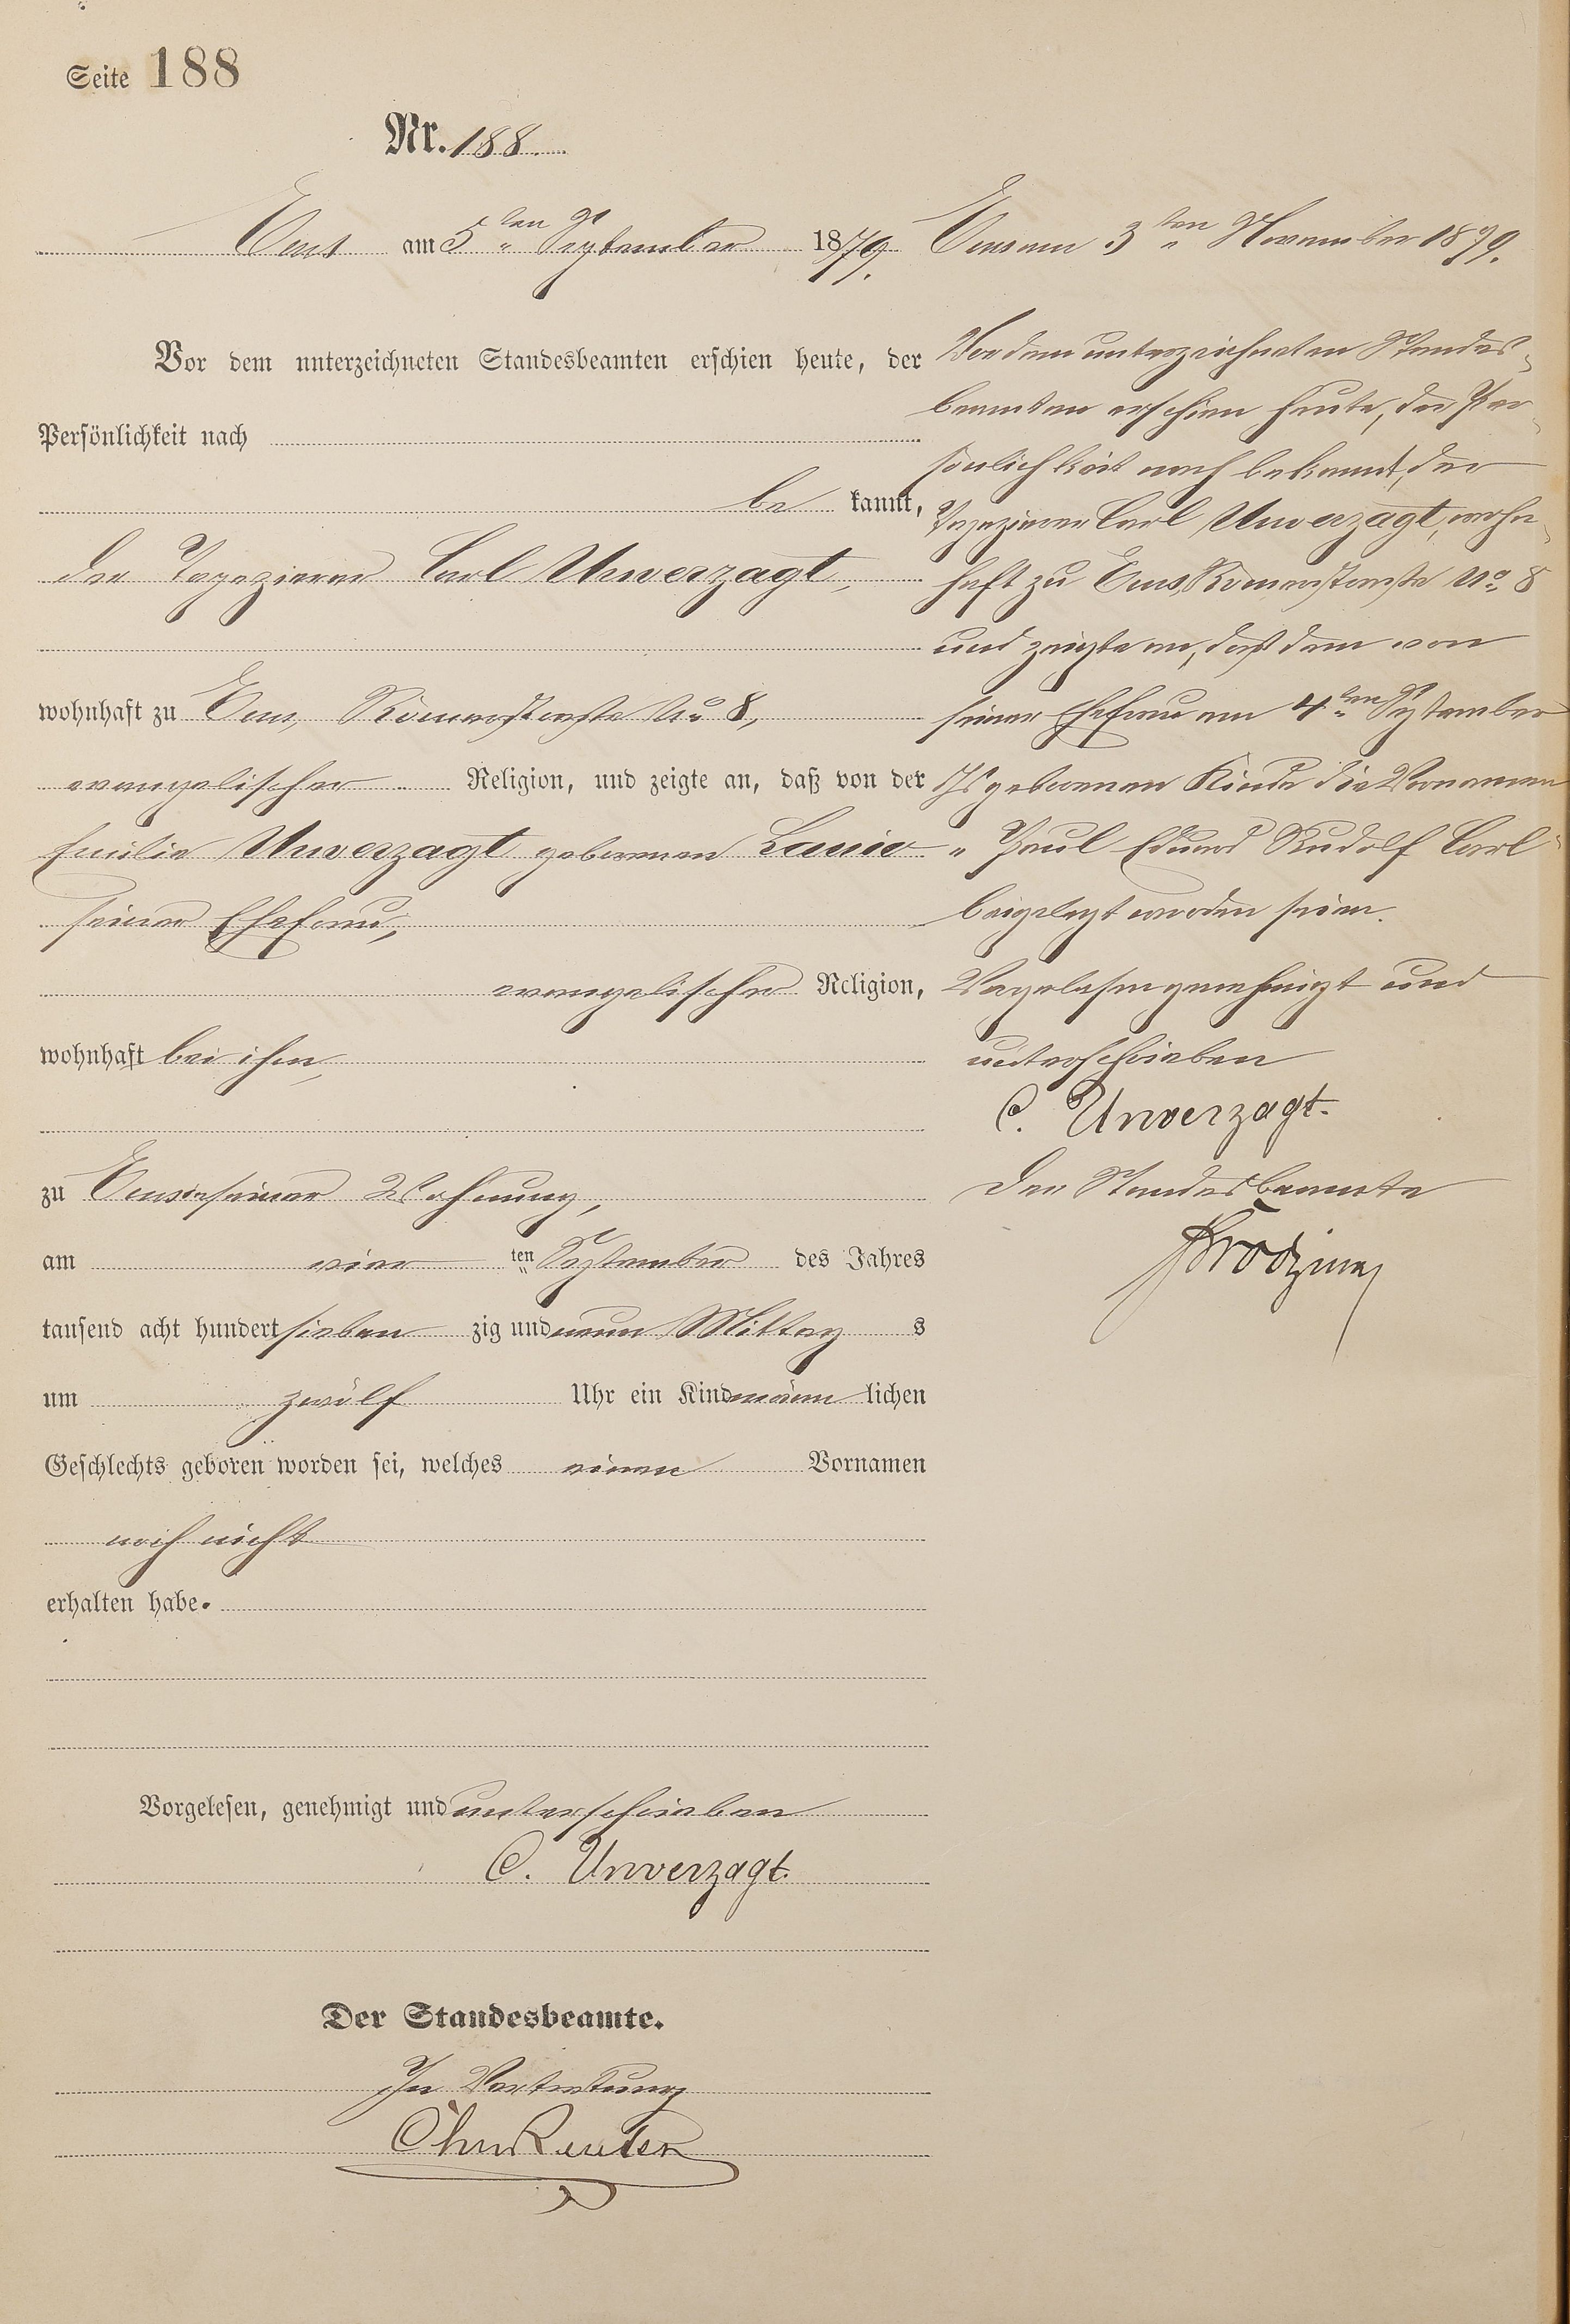 Seite 188
Nr. 188.
Ems am 5ten September 1879.
Vor dem unterzeichneten Standesbeamten erschien heute, der
Persönlichkeit nach
be kannt,
der Tapezierer Carl Unverzagt,
wohnhaft zu Ems, Römerstraße No 8,
evangelischer Religion, und zeigte an, daß von der
Emilie Unverzagt geborenen
seiner Ehefrau,
evangelischer Religion,
wohnhaft bei ihm,
zu Ems in seiner Wohnung,
am vier ten September des Jahres
tausend acht hundert sieben zig und neun Mittag s
um zwölf Uhr ein Kind männ lichen
Geschlechts geboren worden sei, welches einen Vornamen
noch nicht
erhalten habe.
Vorgelesen, genehmigt und unterschrieben
C. Unverzagt.
Der Standesbeamte.
In Vertretung
Reuter
Ems am 3ten November 1879.
Vor dem unterzeichneten Standes-
beamten erschien heute, der Per-
sönlichkeit nach bekannt, der
Tapezierer Carl Unverzagt, wohn-
haft zu Ems, Römerstraße No 8
und zeigte an, daß dem von
seiner Ehefrau am 4ten September
geborenen Kinde die Vornamen
"Paul Eduard Rudolf Carl"
beigelegt worden seien.
Vorgelesen genehmigt und
unterschrieben
C. Unverzagt.
Der Standesbeamte